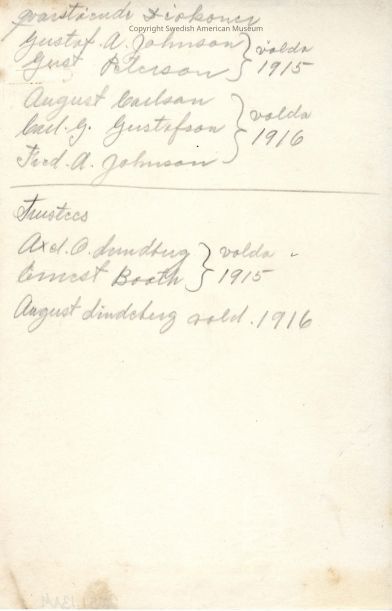 qvarstående Diakoner
Copyright Swedish American Museum
Gustaf A. Johnson } valda
Gust Peterson } 1915
August Carlson } valda
Carl. G. Gustafson } 1916
Fred. A. Johnson
Trustees
Axel. O. Lundberg } valda
Ernest Booth } 1915
August Lindeberg vald. 1916